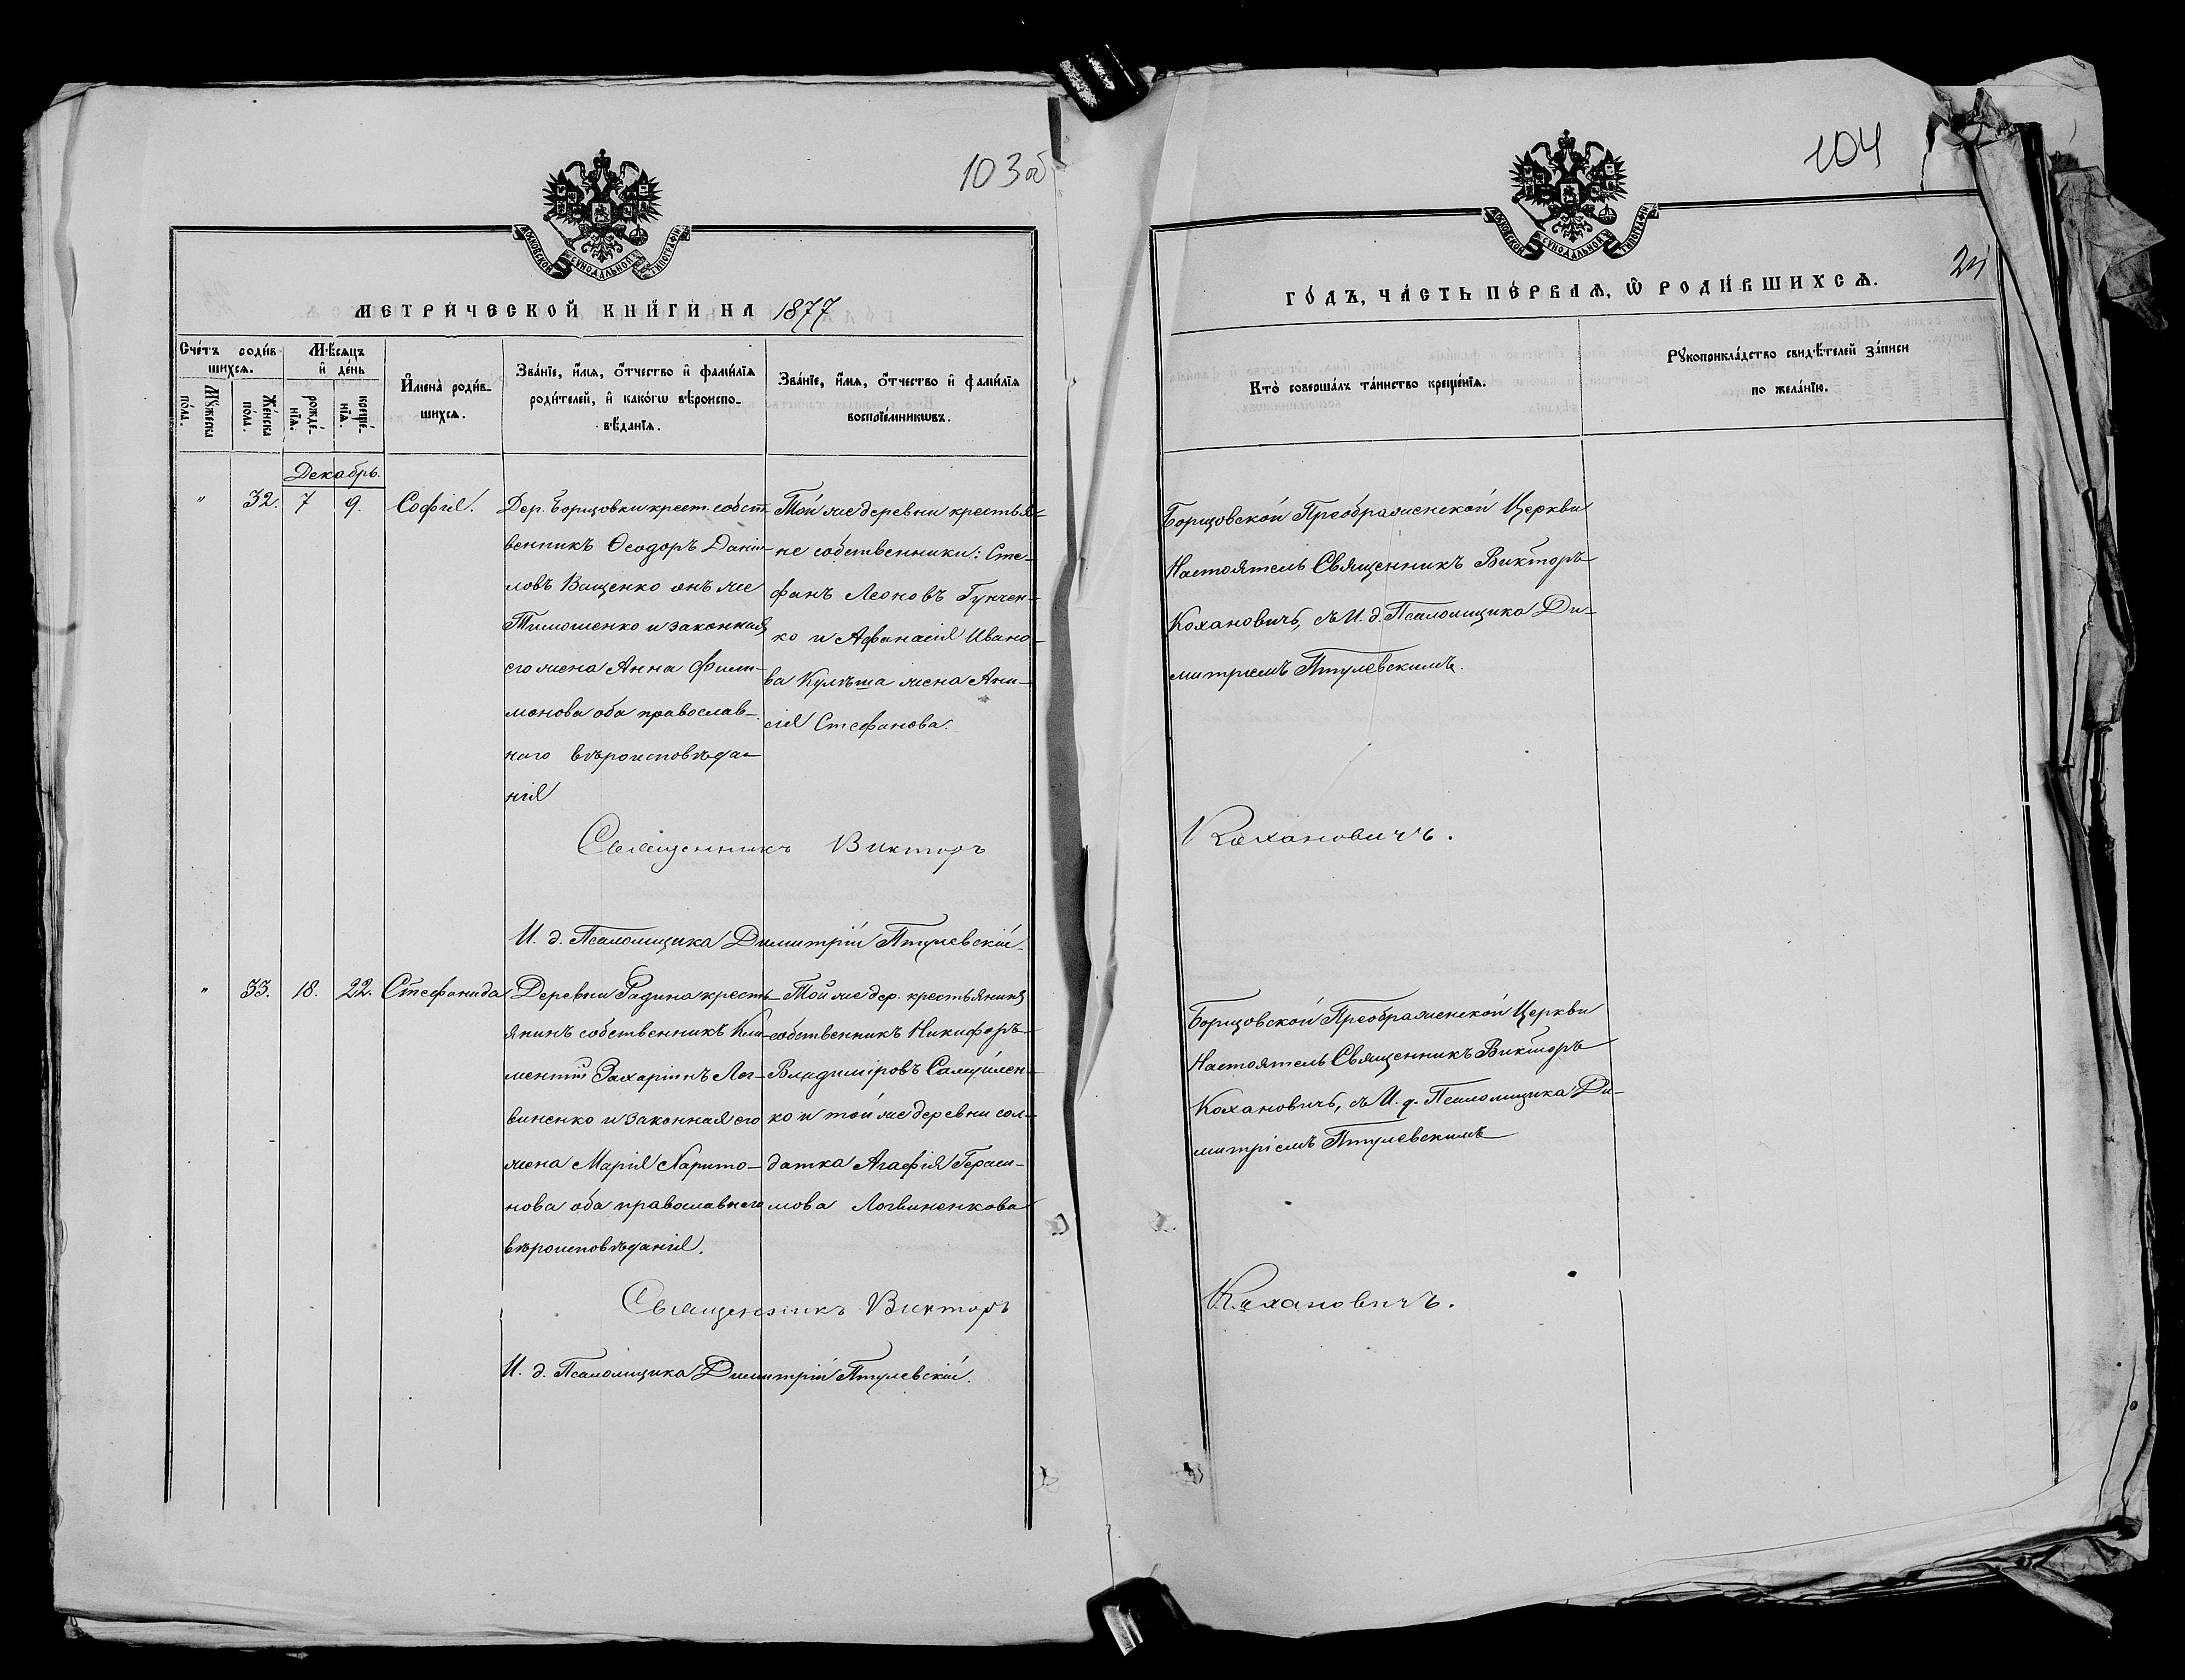 103об
МОСКОВСКОЙ СѴНОДАЛЬНОЙ ТИПОГРАФІИ
МЕТРИ́ЧЕСКОЙ КНИ́ГИ НА 1877
Сче́тъ роди́вшихсѧ.
Мꙋ́жеска по́ла.
Же́нска по́ла.
Мѣ́сѧцъ и҆ де́нь
рожде́нїѧ.
креще́нїѧ.
И҆мена̀ роди́в-
шихсѧ.
Зва́нїе, и҆́мѧ, ѻ҆́тчество и҆ фами́лїѧ
роди́телей, и҆ како́гѡ вѣроиспо-
вѣ́данїѧ.
Зва́нїе, и҆́мѧ, ѻ҆́тчество и҆ фами́лїѧ
воспрїе́мникѡвъ.
Декабрь.
" 32. 7 9. Софія.
Дер. Борщовки крест. собст-
венникъ Ѳеодоръ Дании-
ловъ Ващенко онъ же
Тимошенко и законная
его жена Анна Фили-
монова оба православ-
наго вѣроисповѣда-
нія
Той же деревни крестья-
не собственники: Сте-
фанъ Леоновъ Гунчен-
ко и Афанасія Ивано-
ва Кулѣша жена Ани-
сія Стефанова.
Священникъ Викторъ
И. д. Псаломщика Димитрій Птулевскій.
" 33. 18. 22. Стефанида
Деревни Радина кресть-
янинъ собственникъ Кли-
ментій Захаріинъ Лог-
виненко и законная его
жена Марія Харито-
нова оба православнаго
вѣроисповѣданія.
Той же дер. крестьянинъ
собственникъ Никифоръ
Владиміровъ Самуилен-
ко и той же деревни сол-
датка Агафія Гераси-
мова Логвиненкова
Священникъ Викторъ
И. д. Псаломщика Димитрій Птулевскій.
104
МОСКОВСКОЙ СѴНОДАЛЬНОЙ ТИПОГРАФІИ
ГО́ДЪ, ЧА́СТЬ ПЕ́РВАѦ, Ѡ҆ РОДИ́ВШИХСѦ.
Кто̀ соверша́лъ та́инство креще́нїѧ.
Рꙋкоприкла́дство свидѣ́телей за́писи
по жела́нїю.
Борщовской Преображенской Церкви
Настоятель Священникъ Викторъ
Кохановичъ, съ И. д. Псаломщика Ди-
митріемъ Птулевскимъ.
Кохановичъ.
Борщовской Преображенской Церкви
Настоятель Священникъ Викторъ
Кохановичъ, съ И. д. Псаломщика Ди-
митріемъ Птулевскимъ
Кохановичъ.